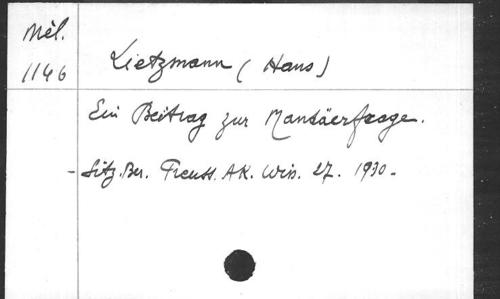 Mél.
1146
Lietzmann (Hans)
Ein Beitrag zur Mandäerfrage.
- Sitz. Ber. Preuss. AK. Wiss. 27. 1930 -